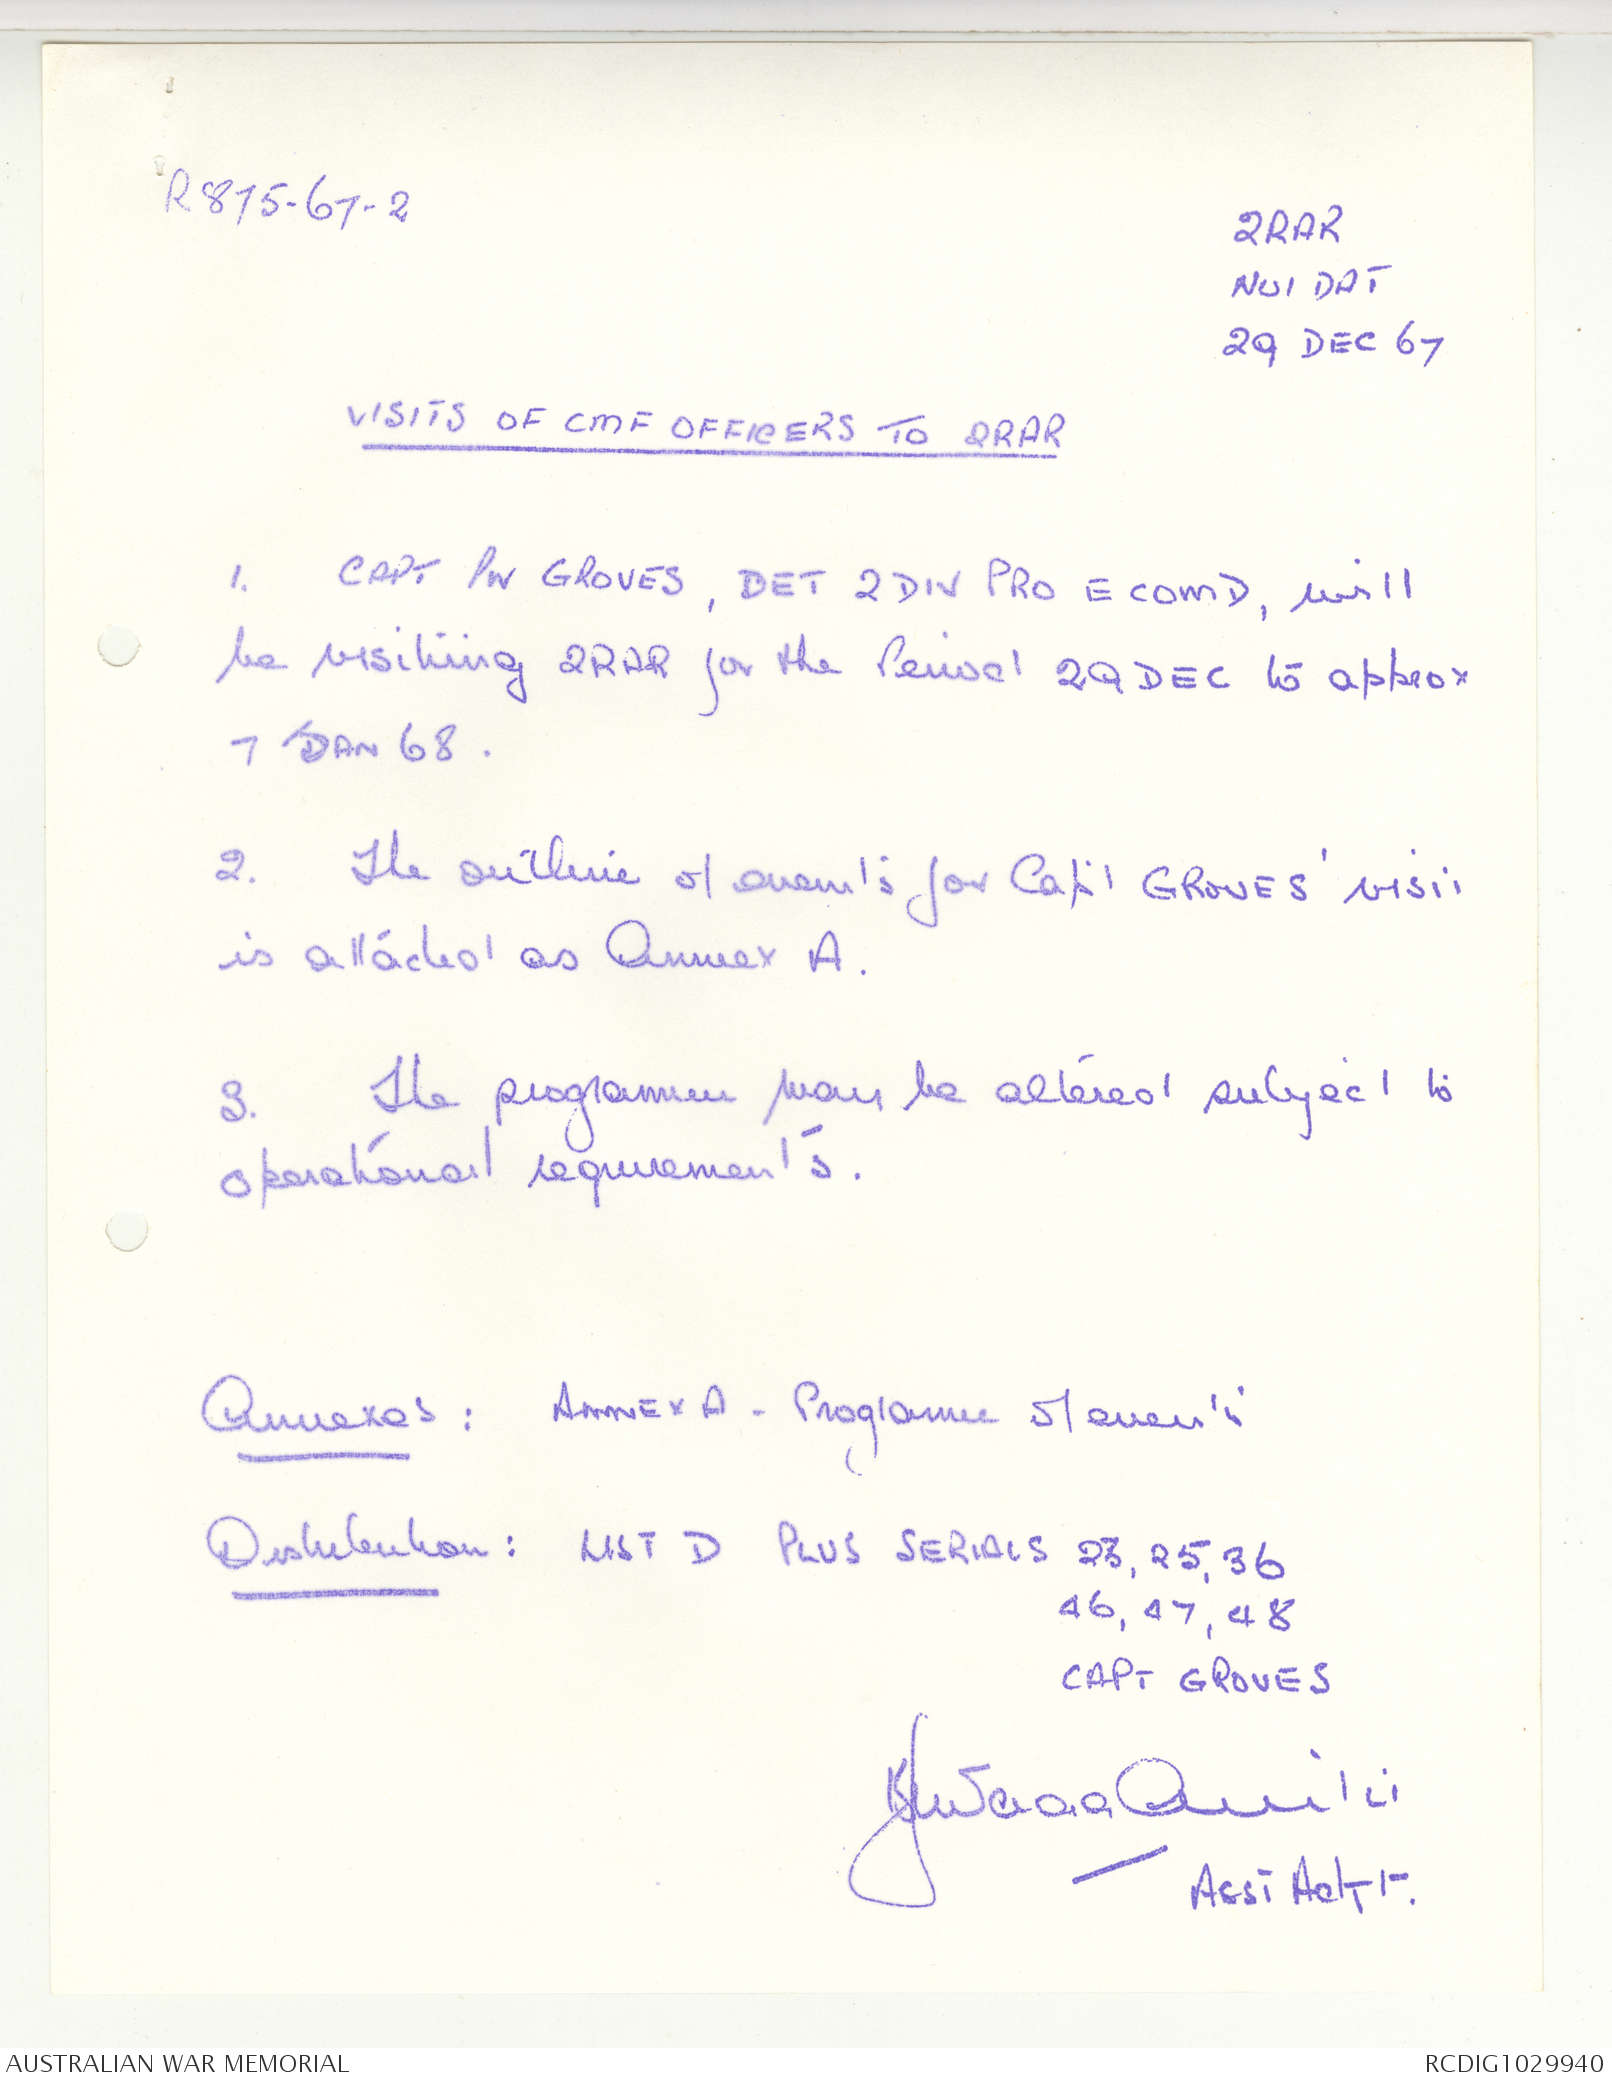 R875-67-2
2RAR
NUI DAT
29 DEC 67
VISITS OF CMF OFFICERS TO 2RAR
1. CAPT PW GROVES, DET 2 DIV PRO E COMD, will
be visiting 2RAR for the Period 29 DEC to approx
7 JAN 68.
2. The outline of events for Capt GROVES' visit
is attached as Annex A.
3. The programme may be altered subject to
operational requirements.
Annexes: ANNEX A - Programme of events
Distribution: LIST D PLUS SERIALS 23, 25, 36
46, 47, 48
CAPT GROVES
Asst Adjt.
AUSTRALIAN WAR MEMORIAL
RCDIG1029940